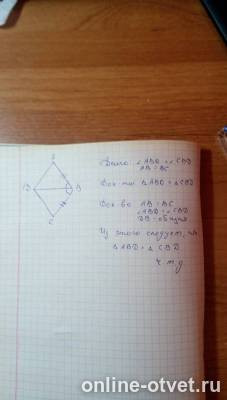 Дано: ∠ABD = ∠CBD
AB = BC
Док-ть: ΔABD = ΔCBD
Док-во: AB = BC
∠ABD = ∠CBD
DB = общая
Из этого следует, что
ΔABD = ΔCBD
ч.т.д
D
B
C
online-otvet.ru